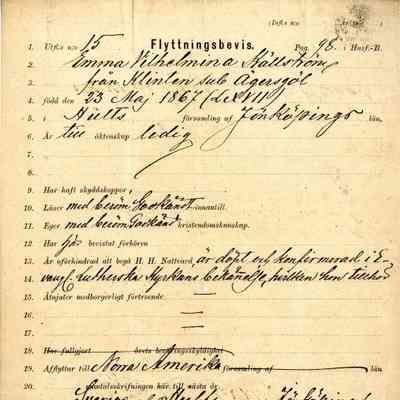 (Inl:s n:o
1. Utfl:s n:o 15 Flyttningsbevis. Pag. 98. i Husf.-B.
2. Emma Vilhelmina Hällström
3. från Klinten sub Agersjöl
4. född den 23 Maj 1867 (LXVII)
5. i Hults församling af Jönköpings län,
6. Är till äktenskap ledig
7.
8.
9. Har haft skyddskoppor,
10. Läser med beröm Godkändt innantill.
11. Eger med beröm Godkänd kristendomskunskap.
12. Har bevistat förhören
13. Är oförhindrad att begå H. H. Nattvard, är döpt och konfirmerad i E-
14. vang. Lutherska Kyrkans bekännelse, hvilken hon tillhör
15. Åtnjuter medborgerligt förtroende.
16.
17.
18. Har fullgjort årets beväringsskyldighet
19. Afflyttar till Norra Amerika församling af län
20. Mantalsskrifningen här till nästa år
Sverige Hults Jönköpings